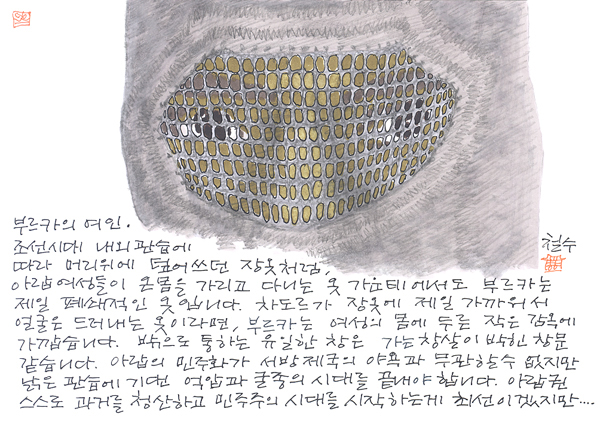 부르카의 여인.
조선시대 내외관습에
따라 머리위에 덮어쓰던 장옷처럼,
아랍여성들이 온몸을 가리고 다니는 옷 가운데에서도 부르카는
제일 폐쇄적인 옷입니다. 차도르가 장옷에 제일 가까워서
얼굴은 드러내는 옷이라면, 부르카는 여성의 몸에 두른 작은 감옥에
가깝습니다. 밖으로 통하는 유일한 창은 가는 창살이 박힌 창문
같습니다. 아랍의 민주화가 서방제국의 야욕과 무관할수 없지만
낡은 관습에 기댄 억압과 굴종의 시대를 끝내야 합니다. 아랍권
스스로 과거를 청산하고 민주주의 시대를 시작하는게 최선이겠지만....
철수